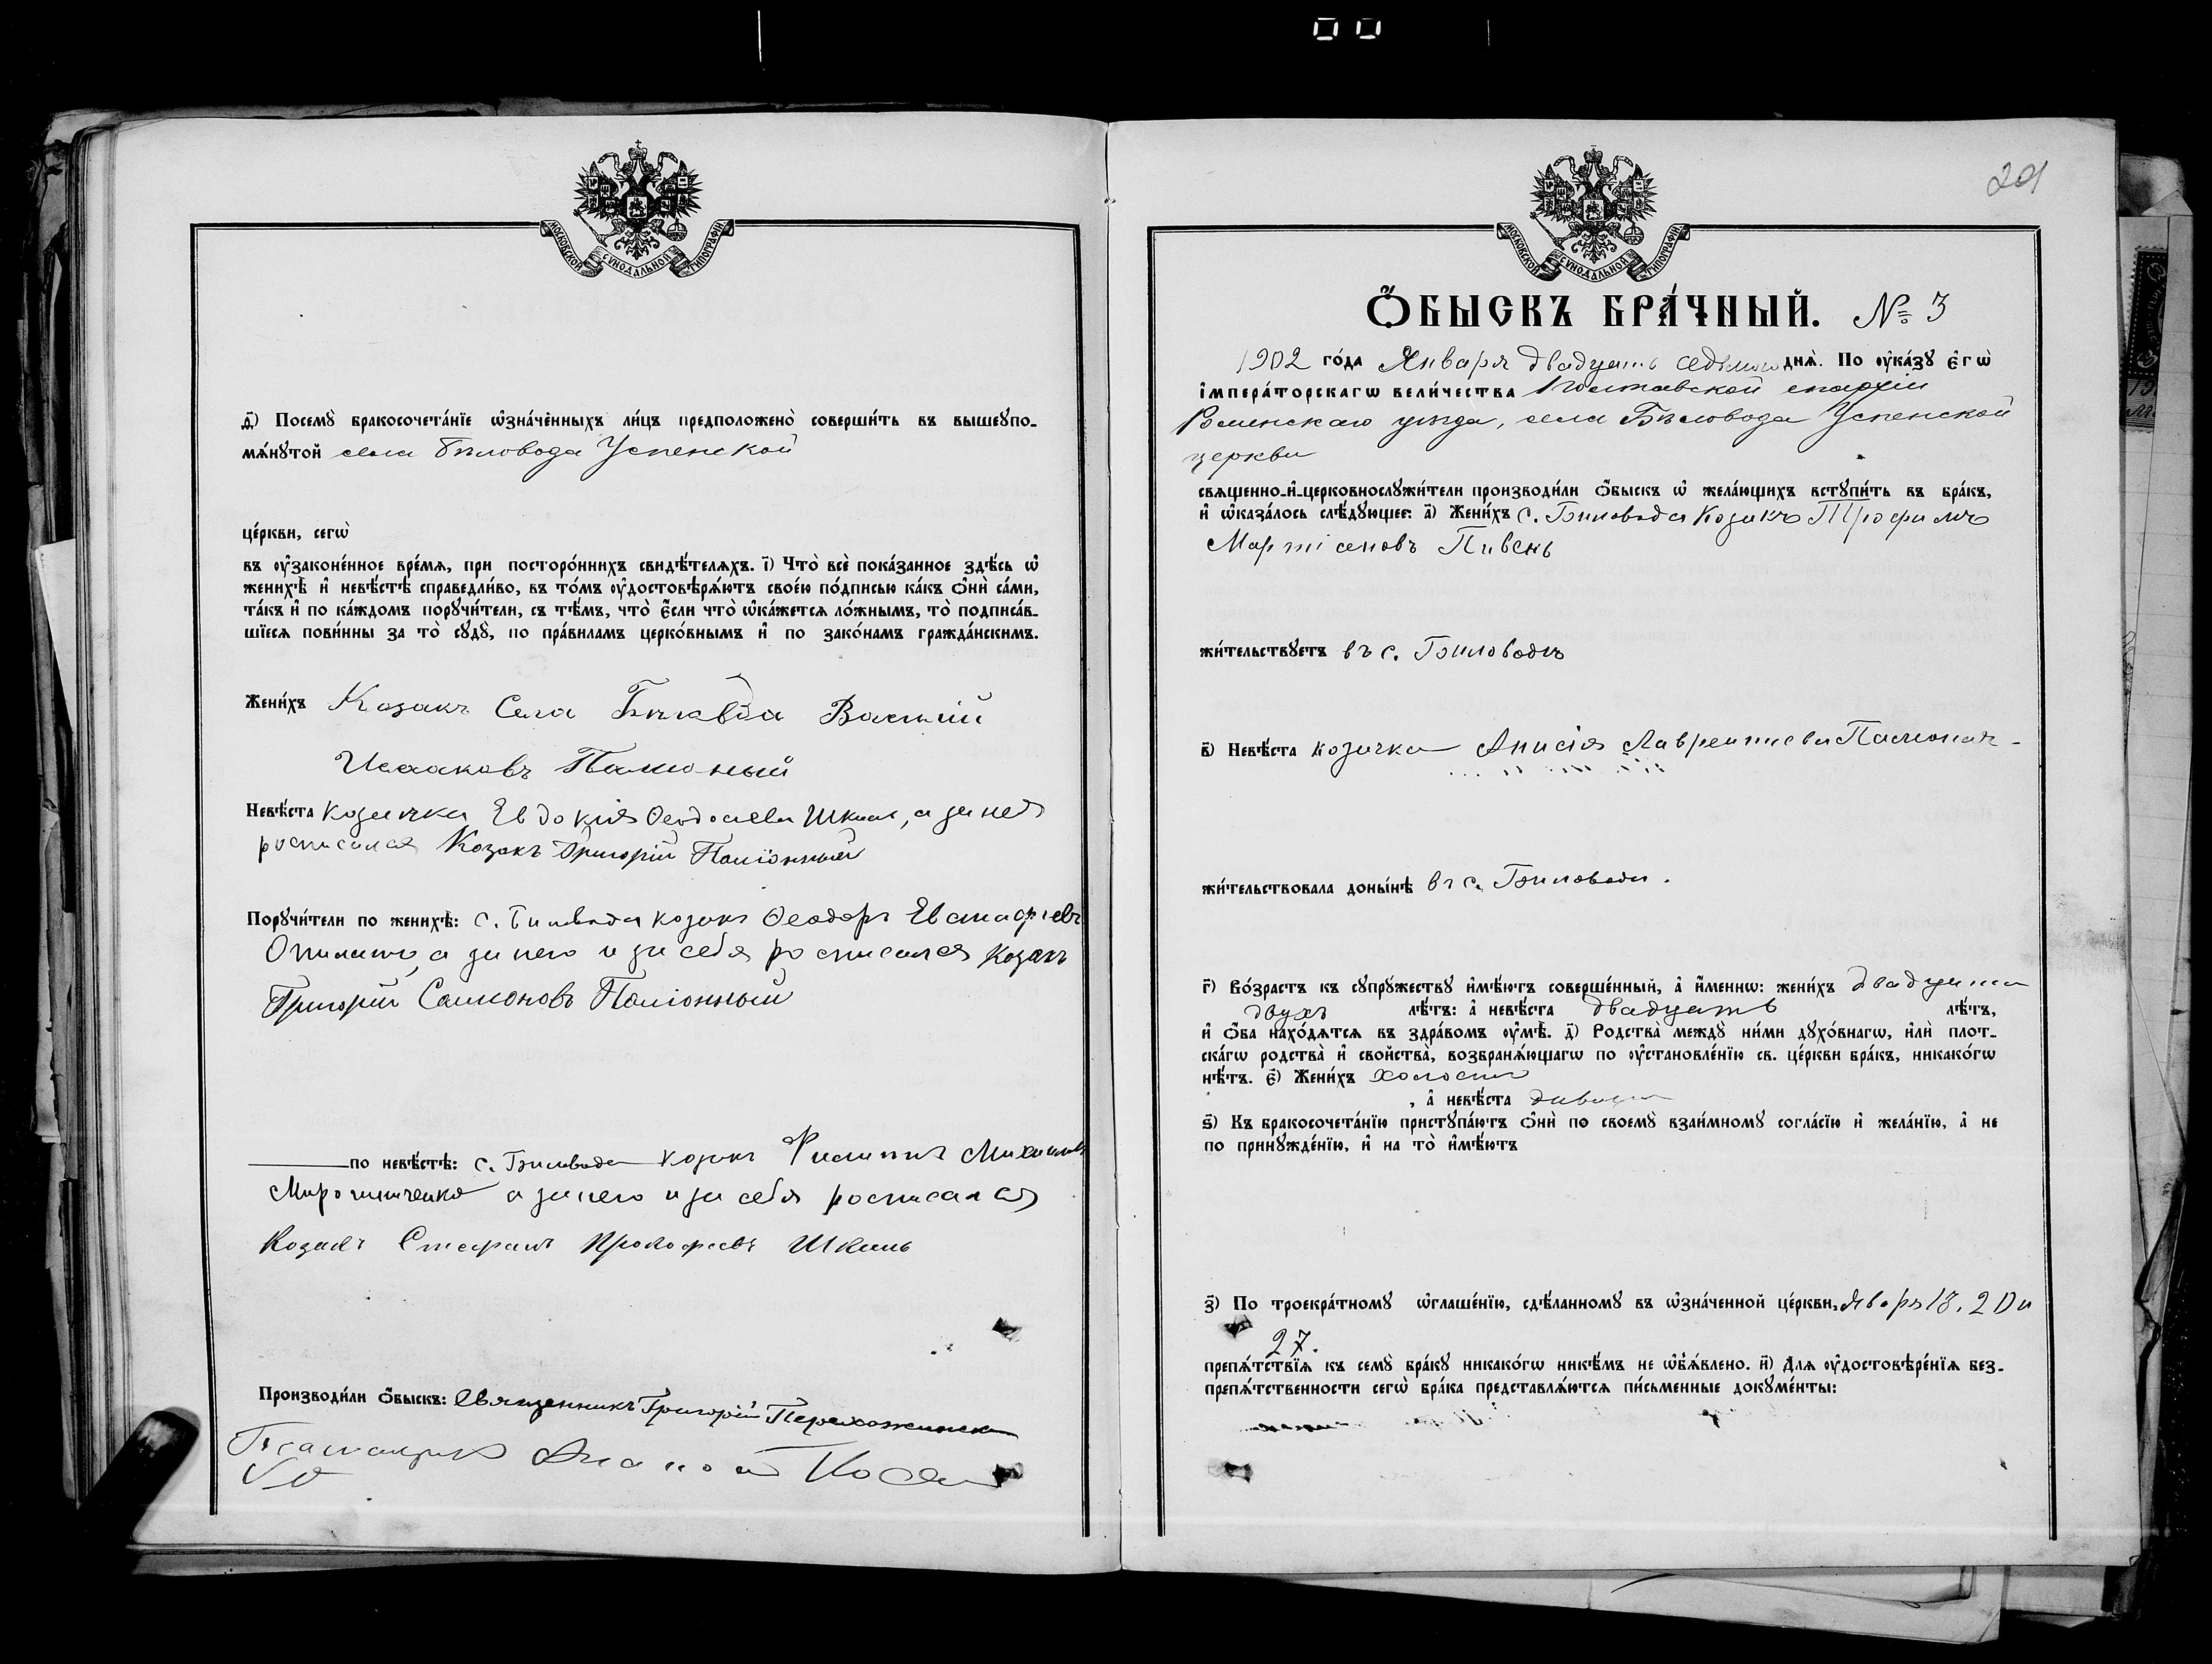 МОСКОВСКОЙ СѴНОДАЛЬНОЙ ТИПОГРАФІИ
ѳ҃) Посемꙋ̀ бракосочета́нїе ѡ҆зна́чен̾ныхъ ли́цъ предположено̀ соверши́ть въ вышеꙋпо-
мѧ́нꙋтой села Бѣловода Успенской
це́ркви, сегѡ̀
въ ᲂу҆законе́нное вре́мѧ, при посторо́ннихъ свидѣ́телѧхъ. і҃) Что̀ всѐ пока́занное здѣ́сь ѡ҆
женихѣ̀ и҆ невѣ́стѣ справедли́во, въ то́мъ ᲂу҆достовѣрѧ́ютъ свое́ю по́дписью ка́къ ѻ҆нѝ са́ми,
та́къ и҆ по ка́ждомъ порꙋчи́тели, съ тѣ́мъ, что̀ є҆́сли что̀ ѡ҆ка́жетсѧ ло́жнымъ, то̀ подписа́в-
шїесѧ пови́нны за то̀ сꙋдꙋ̀, по пра́виламъ церко́внымъ и҆ по зако́намъ гражда́нскимъ.
Жени́хъ Козакъ Села Василій
Исааковъ
Невѣ́ста козачка Евдокія Ѳеодосіева Шкиль, а за нея
росписался Козакъ Григорій
Порꙋчи́тели по женихѣ̀: с. Биловода козакъ Ѳеодоръ Евстафіевъ
а за него и за себя росписался козакъ
Григорій Самсоновъ
по невѣ́стѣ: с. Биловода козакъ Филиппъ
Мирошниченко а за него и за себя росписался
Козакъ Стефанъ Прокофіевъ Шкиль
Производи́ли ѻ҆́быскъ: Священникъ Григорій
МОСКОВСКОЙ СѴНОДАЛЬНОЙ ТИПОГРАФІИ
Ѻ҆́БЫСКЪ БРА́ЧНЫЙ. № 3
1902 го́да Января двадцать седьмого днѧ̀. По ᲂу҆ка́зꙋ є҆гѡ̀
і҆мпера́торскагѡ вели́чества Полтавской епархіи
Роменскаго уѣзда, села Бѣловода Успенской
церкви
свѧщенно-и҆-церковнослꙋжи́тели производи́ли ѻ҆́быскъ ѡ҆ жела́ющихъ встꙋпи́ть въ бра́къ,
и҆ ѡ҆каза́лось слѣ́дꙋющее: а҃) Жени́хъ с. Биловода Козакъ Трофимъ
Мартіановъ Пивень
жи́тельствꙋетъ въ с. Биловодѣ
в҃) Невѣ́ста козачка Анисія Лаврентиева
жи́тельствовала доны́нѣ въ с. Биловоди.
г҃) Во́зрастъ къ сꙋпрꙋ́жествꙋ и҆мѣ́ютъ соверше́нный, а҆ и҆́меннѡ: жени́хъ двадцати
двухъ лѣ́тъ: а҆ невѣ́ста двадцать лѣ́тъ,
и҆ ѻ҆́ба нахо́дѧтсѧ въ здра́вомъ ᲂу҆мѣ̀. д҃) Родства̀ междꙋ̀ ни́ми дꙋхо́внагѡ, и҆лѝ плот-
ска́гѡ родства̀ и҆ свойства̀, возбранѧ́ющагѡ по ᲂу҆становле́нїю св. це́ркви бра́къ, никако́гѡ
нѣ́тъ. є҃) Жени́хъ холостъ
, а҆ невѣ́ста дивица
ѕ҃) Къ бракосочета́нїю пристꙋпа́ютъ ѻ҆нѝ по своемꙋ̀ взаи́мномꙋ согла́сїю и҆ жела́нїю, а҆ не
по принꙋжде́нїю, и҆ на то̀ и҆мѣ́ютъ
з҃) По троекра́тномꙋ ѡ҆глаше́нїю, сдѣ́ланномꙋ въ ѡ҆зна́ченной це́ркви, 20 и
27.
препѧ́тствїѧ къ семꙋ̀ бра́кꙋ никако́гѡ никѣ́мъ не ѡ҆б̾ѧ́влено. и҃) Длѧ ᲂу҆достовѣре́нїѧ без-
препѧ́тственности сегѡ̀ бра́ка представлѧ́ютсѧ пи́сьменные докꙋме́нты: